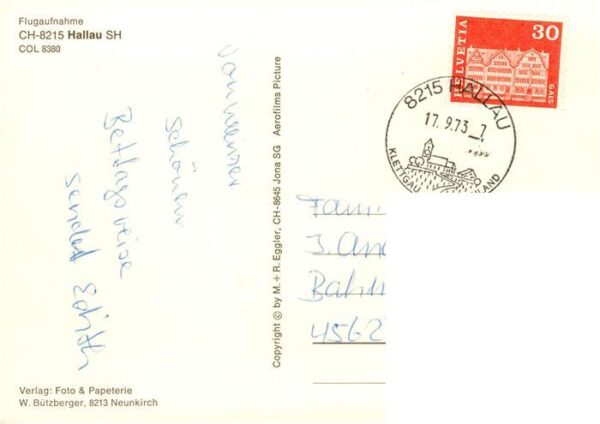 Flugaufnahme
CH-8215 Hallau SH
COL 8380
von meiner
schönen
Bettagsreise
sendet Edith
Verlag: Foto & Papeterie
W. Bützberger, 8213 Neunkirch
Copyright © by M. + R. Eggler, CH-8645 Jona SG Aerofilms Picture
HELVETIA
30
GAIS
8215 HALLAU
17.9.73 7
KLETTGAU
LAND
Fam.
J. And
Bahn
45627